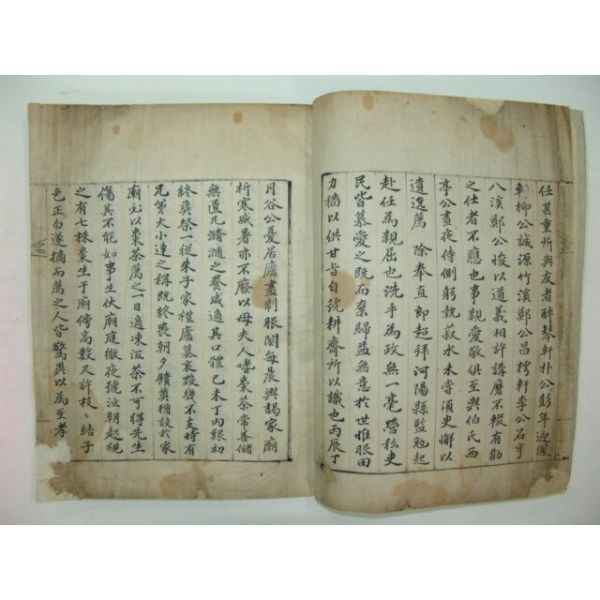 任甚重所與友者醉琴軒朴公彭年迎鳳
軒柳公誠源竹溪鄭公昌樗軒李公石亨
八溪鄭公悛以道義相許講磨不輟有勸
之仕者不應也事親愛敬俱至與伯氏西
亭公晝夜侍側躬執菽水未嘗須史懈以
遺逸薦 除奉直郎超拜河陽縣監勉起
赴任為親屈也洗手為政無一毫營私吏
民皆慕愛之既而棄歸益無意於世惟眼田
力穡以供甘旨自號耕齋所以識也丙辰丁
月谷公憂居廬盡制服闋每晨興謁家廟
祈寒盛暑亦不廢以母夫人嗜棗茶常善儲
無匱凡瀡瀡之養咸適其口體己未丁內艱初
終喪祭一從朱子家禮廬墓哀毀幾不支時有
兄第大小連之稱既終喪朝夕饋奠猶設於家
廟必以棗茶薦之一日適凍沍茶不可得先生
傷其不能如事生伏廟庭徹夜號泣朝起視
之有七株棗生于廟傍高數尺許枝 結子
色正白遂摘而薦之人皆驚異以為至孝